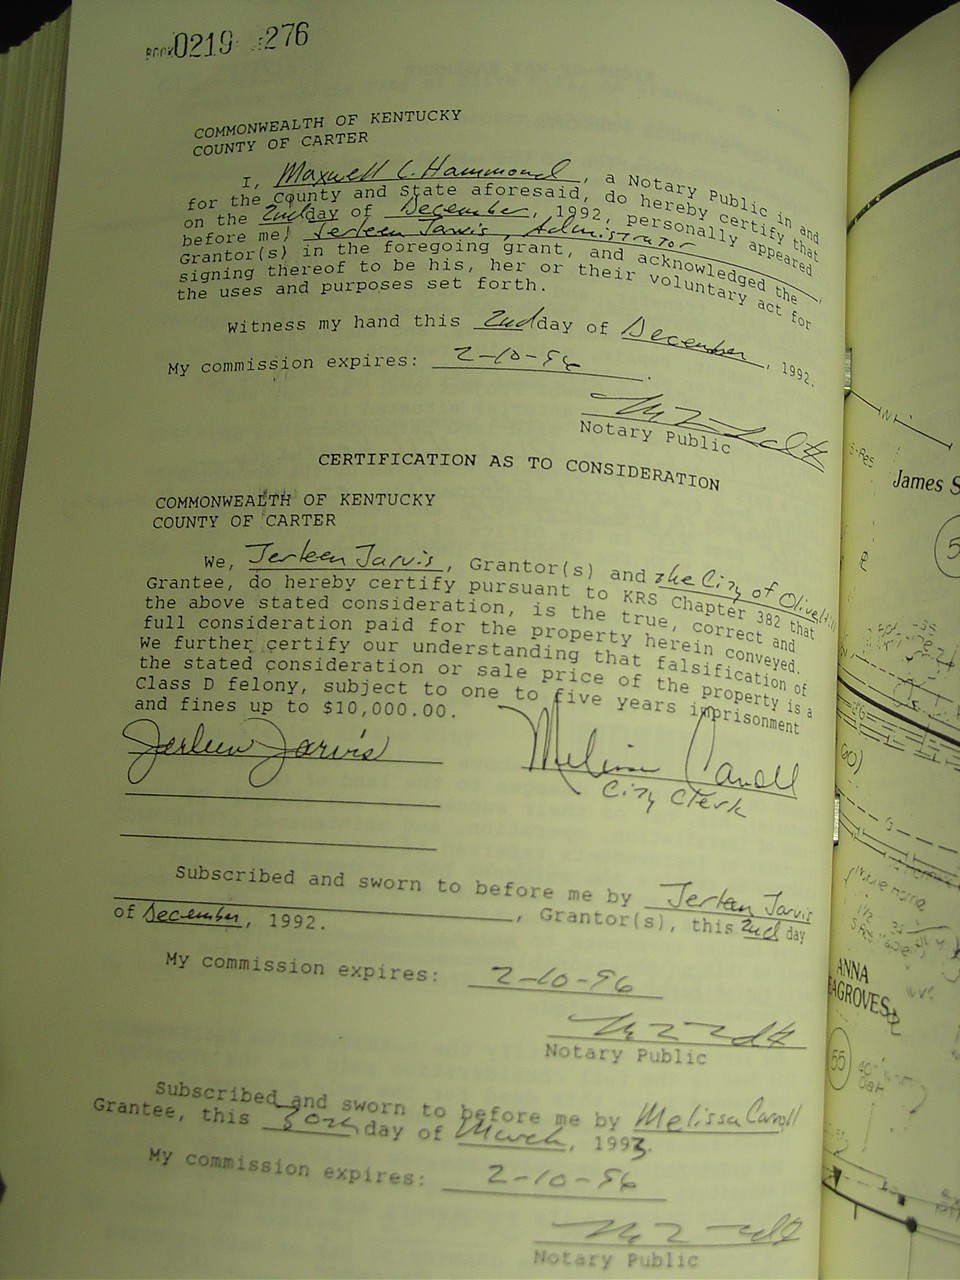 BOOK 0219 276
COMMONWEALTH OF KENTUCKY
COUNTY OF CARTER
I, Maxwell C. Hammond, a Notary Public in
for the County and State aforesaid, do hereby certify that
on the 2nd day of December, 1992, personally appeared
before me, Jerleen Jarvis, Administrator
Grantor(s) in the foregoing grant, and acknowledged the
signing thereof to be his, her or their voluntary act for
the uses and purposes set forth.
Witness my hand this 2nd day of December, 1992.
My commission expires: 2-10-96.
Notary Public
CERTIFICATION AS TO CONSIDERATION
COMMONWEALTH OF KENTUCKY
COUNTY OF CARTER
We, Jerleen Jarvis, Grantor(s) and the City of Olive Hill
Grantee, do hereby certify pursuant to KRS Chapter 382 that
the above stated consideration, is the true, correct and
full consideration paid for the property herein conveyed.
We further certify our understanding that falsification of
the stated consideration or sale price of the property is a
Class D felony, subject to one to five years imprisonment
and fines up to $10,000.00.
Jerleen Jarvis Melissa Carroll
City Clerk
Subscribed and sworn to before me by Jerleen Jarvis
, Grantor(s), this 2nd day
of December, 1992.
My commission expires: 2-10-96
Notary Public
Subscribed and sworn to before me by Melissa Carroll
Grantee, this 30th day of March, 1993.
My commission expires: 2-10-96
Notary Public
S-Res
James S
ANNA
EAGROVES
55